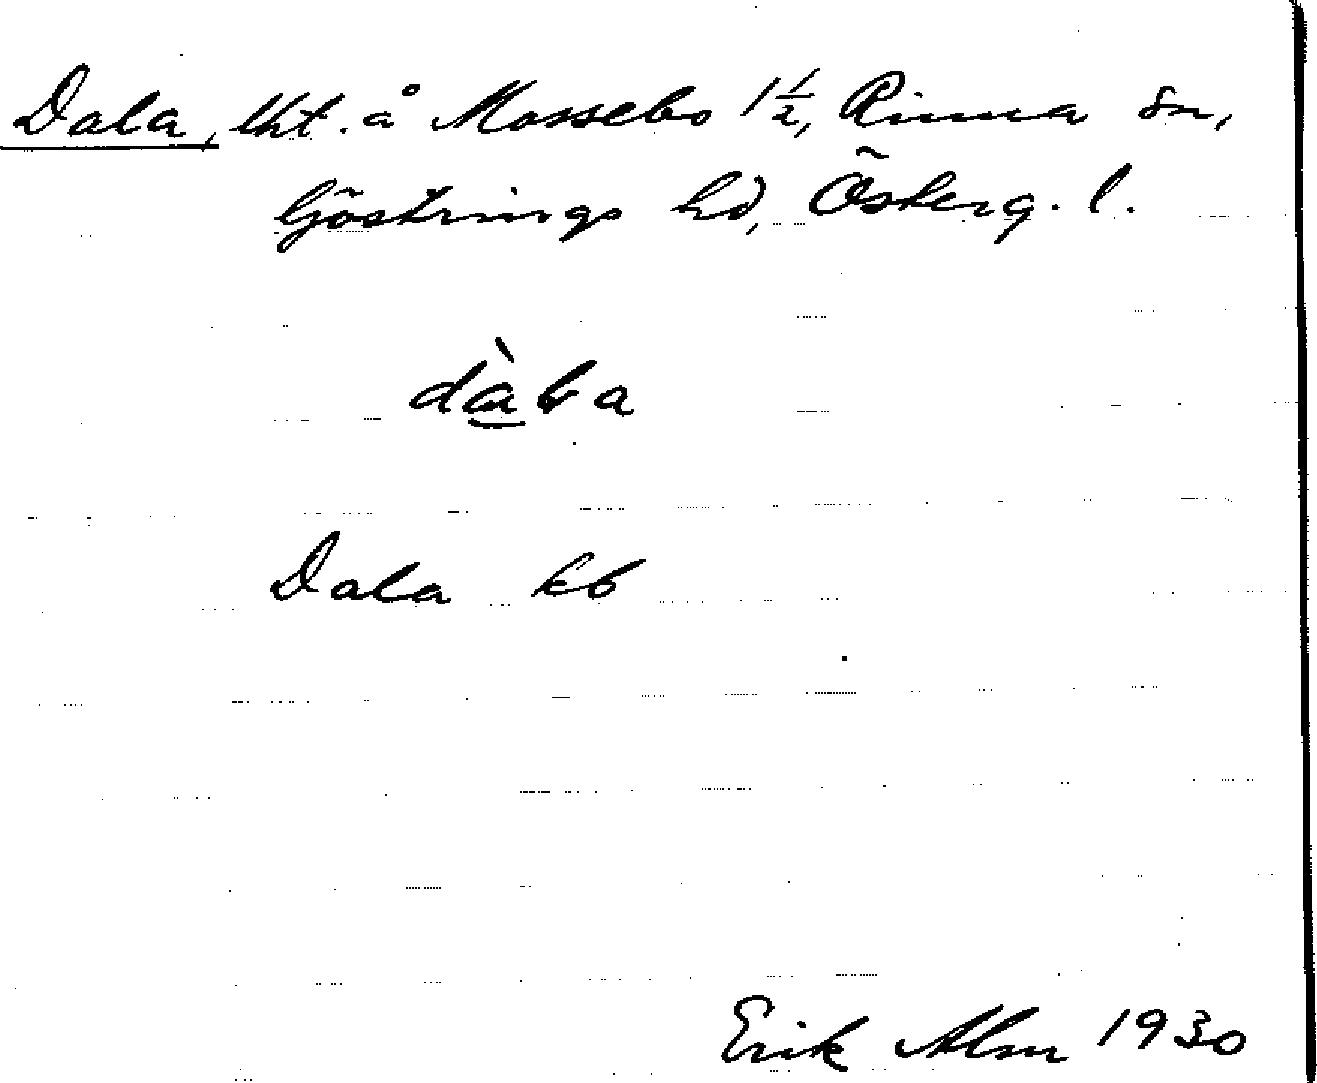 Dala, lht. å Mossebo 1 1/2, Rinna sn,
Göstrings hd, Österg. l.
Dala kb
Erik Alm 1930